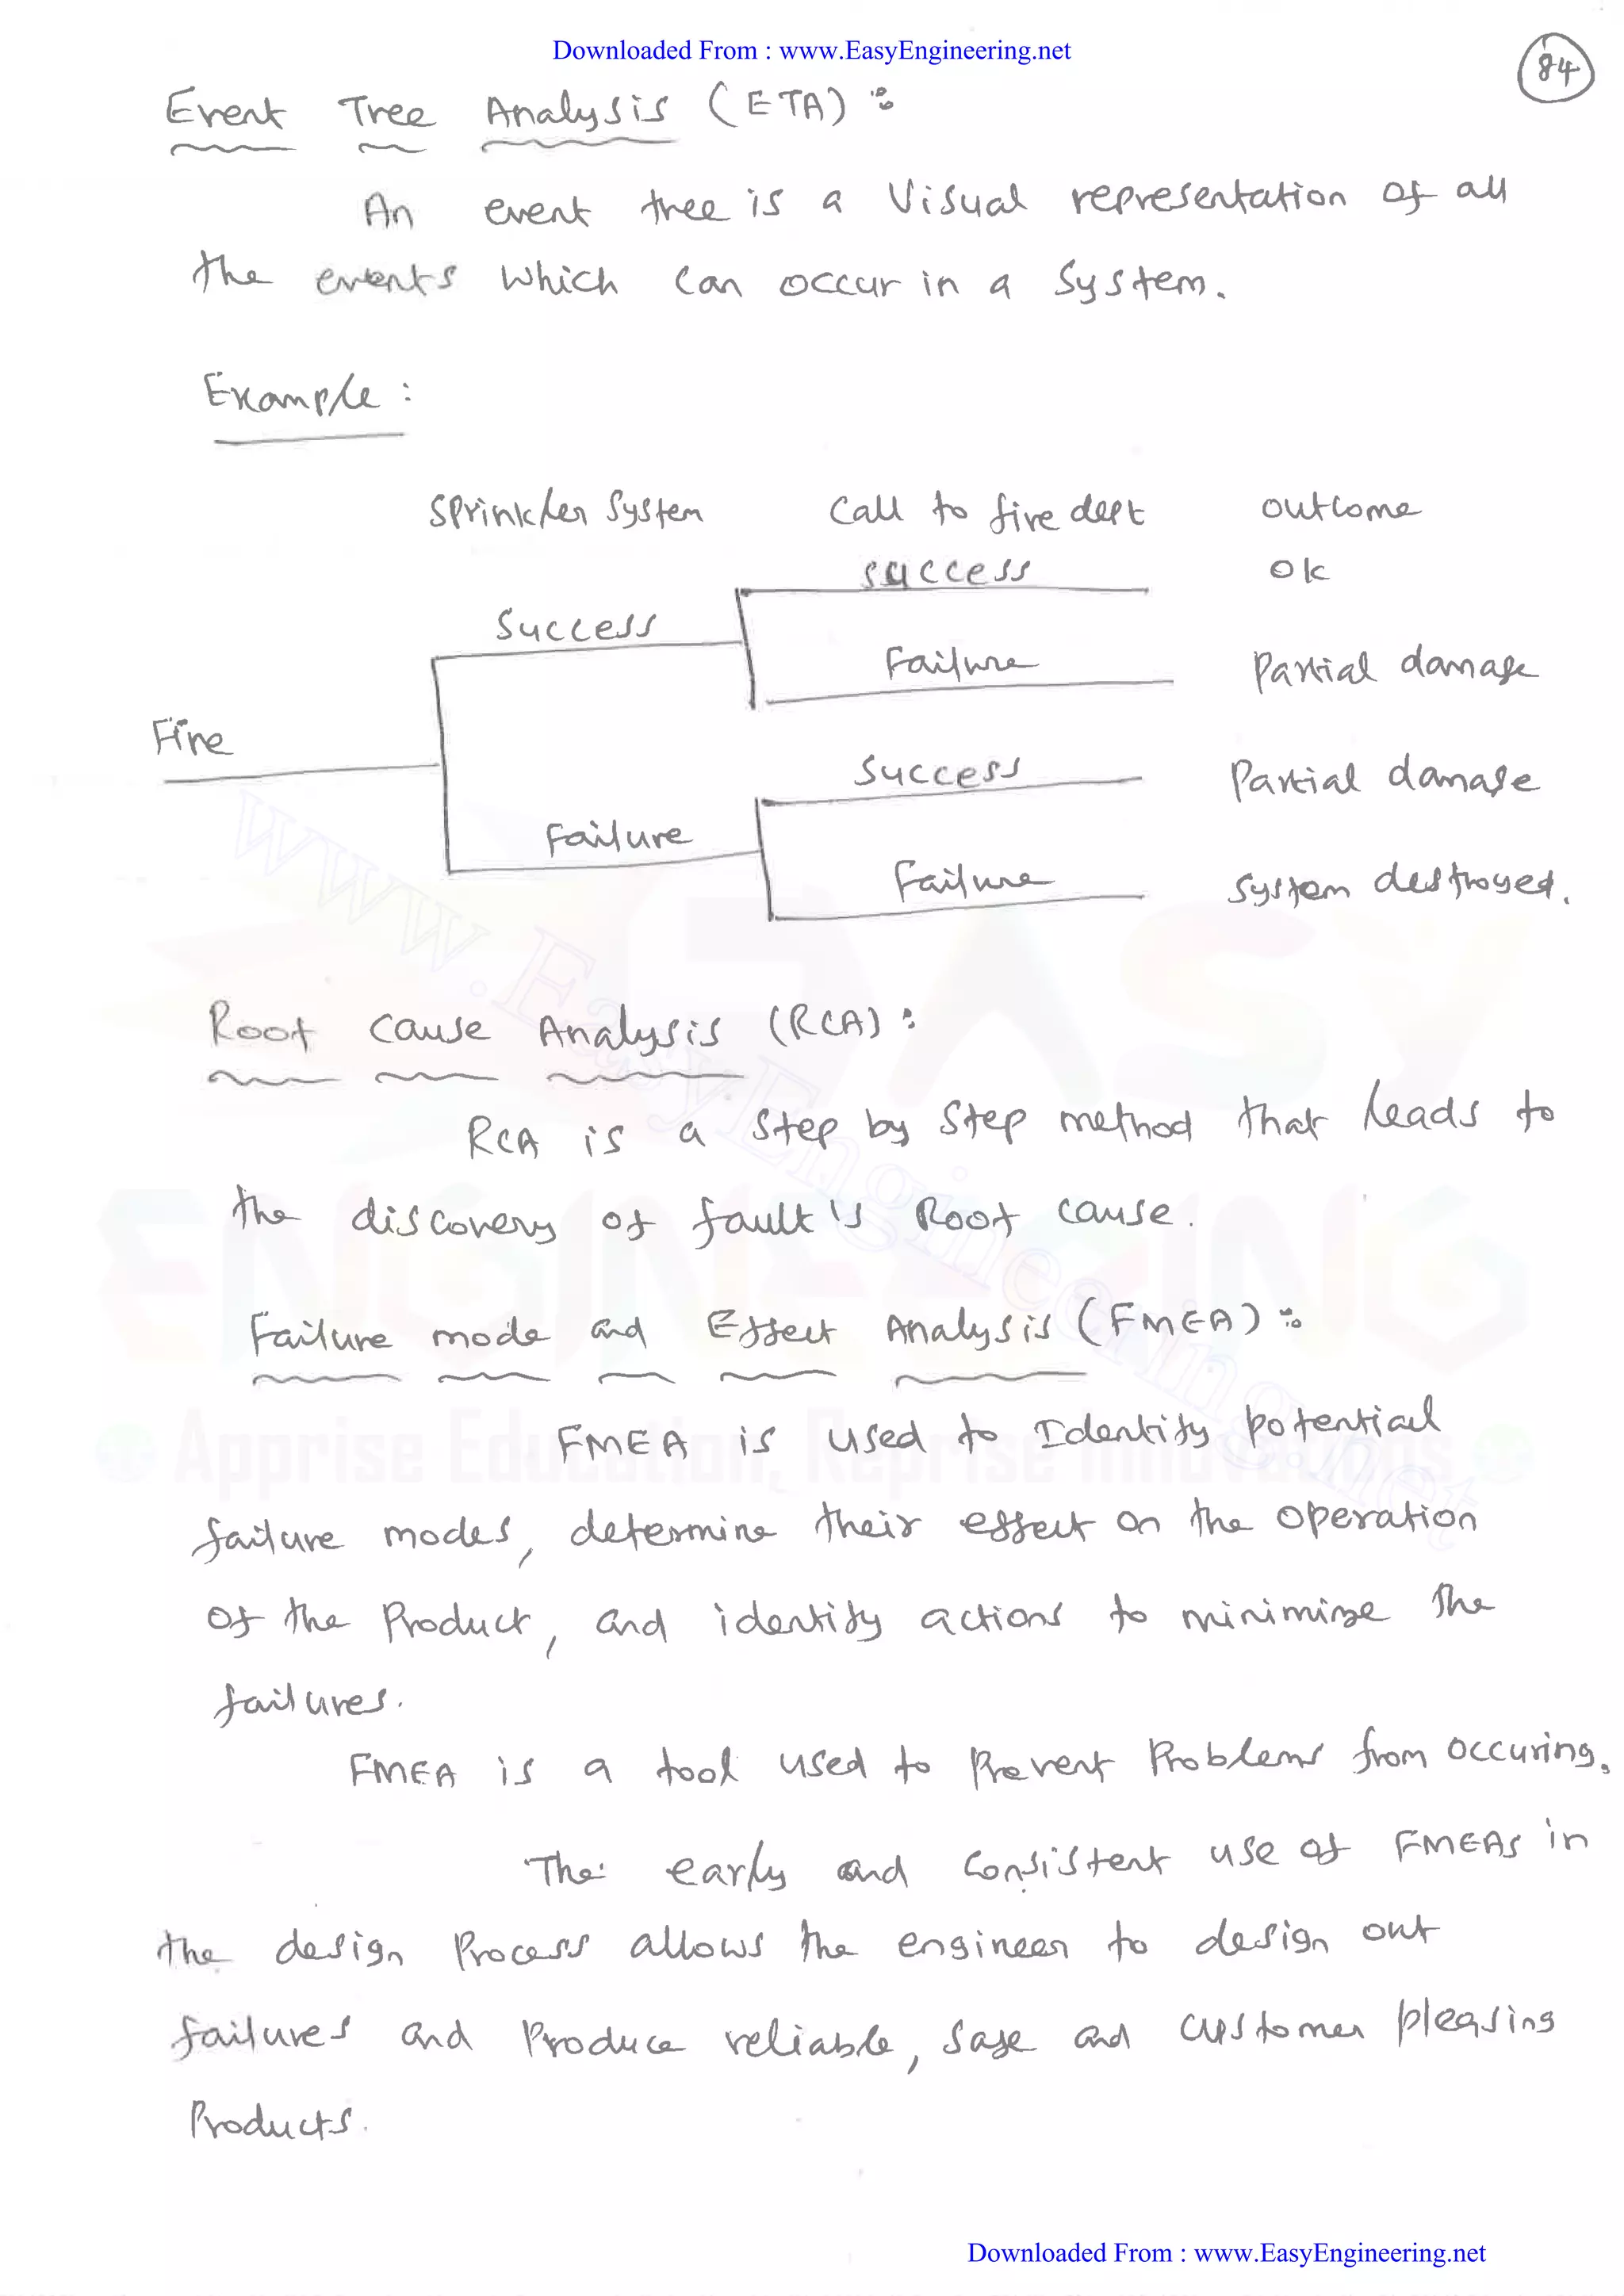 Downloaded From : www.EasyEngineering.net
84
Event Tree Analysis (ETA):
An event tree is a Visual representation of all
the events which can occur in a System.
Example:
Sprinkler System Call to fire dept outcome
Success ok
Success
Failure Partial damage
Fire
Success Partial damage
Failure
Failure System destroyed.
Root Cause Analysis (RCA):
RCA is a Step by Step method that leads to
the discovery of fault's Root cause.
Failure mode and Effect Analysis (FMEA):
FMEA is used to Identify potential
failure modes, determine their effect on the operation
of the Product, and identify actions to minimize the
failures.
FMEA is a tool used to Prevent Problems from occuring.
The early and Consistent use of FMEAs in
the design Process allows the engineer to design out
failures and Produce reliable, Safe and customer pleasing
Products.
www.EasyEngineering.net
EASY
ENGINEERING
Apprise Education, Reprise Innovations
Downloaded From : www.EasyEngineering.net